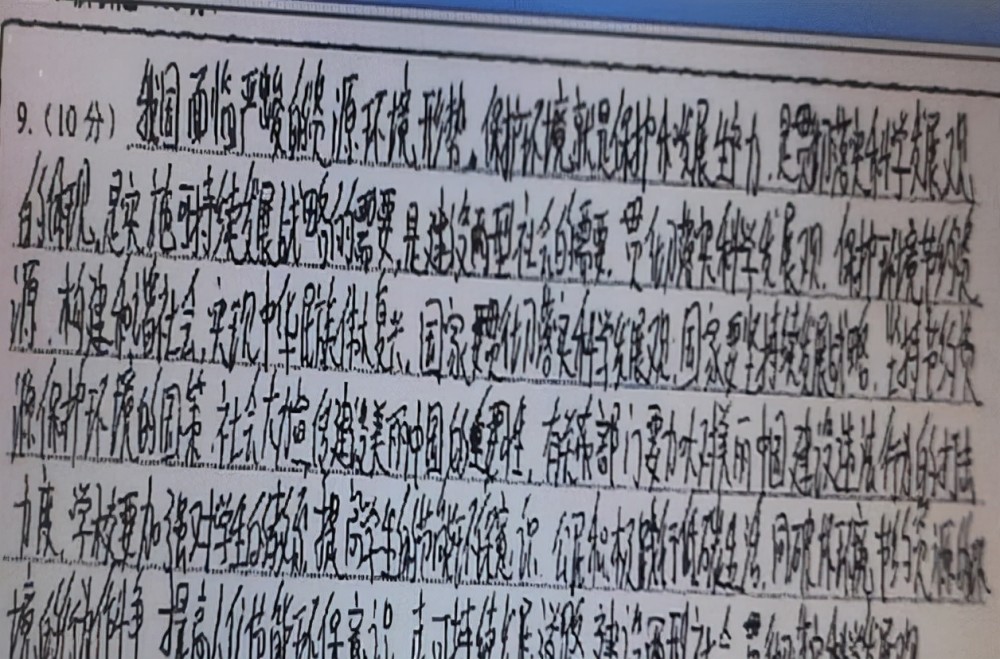 9.(10分) 我国面临严峻的资源环境形势,保护环境就是保护和发展生产力,是贯彻落实科学发展观
的体现,是实施可持续发展战略的需要,是建设两型社会的需要,贯彻落实科学发展观,保护环境节约资
源,构建和谐社会,实现中华民族伟大复兴,国家要贯彻落实科学发展观,国家要坚持持续发展战略,坚持节约资
源保护环境的国策,社会大力宣传建设美丽中国的重要性,有关部门要加大对美丽中国建设违法行为的打击
力度,学校要加强对学生的教育,提高学生的节能环保意识,公民积极践行低碳生活,同破坏环境,节约资源
境的行为作斗争,提高人们节能环保意识,走可持续发展道路,建设两型社会,贯彻落实科学发展观